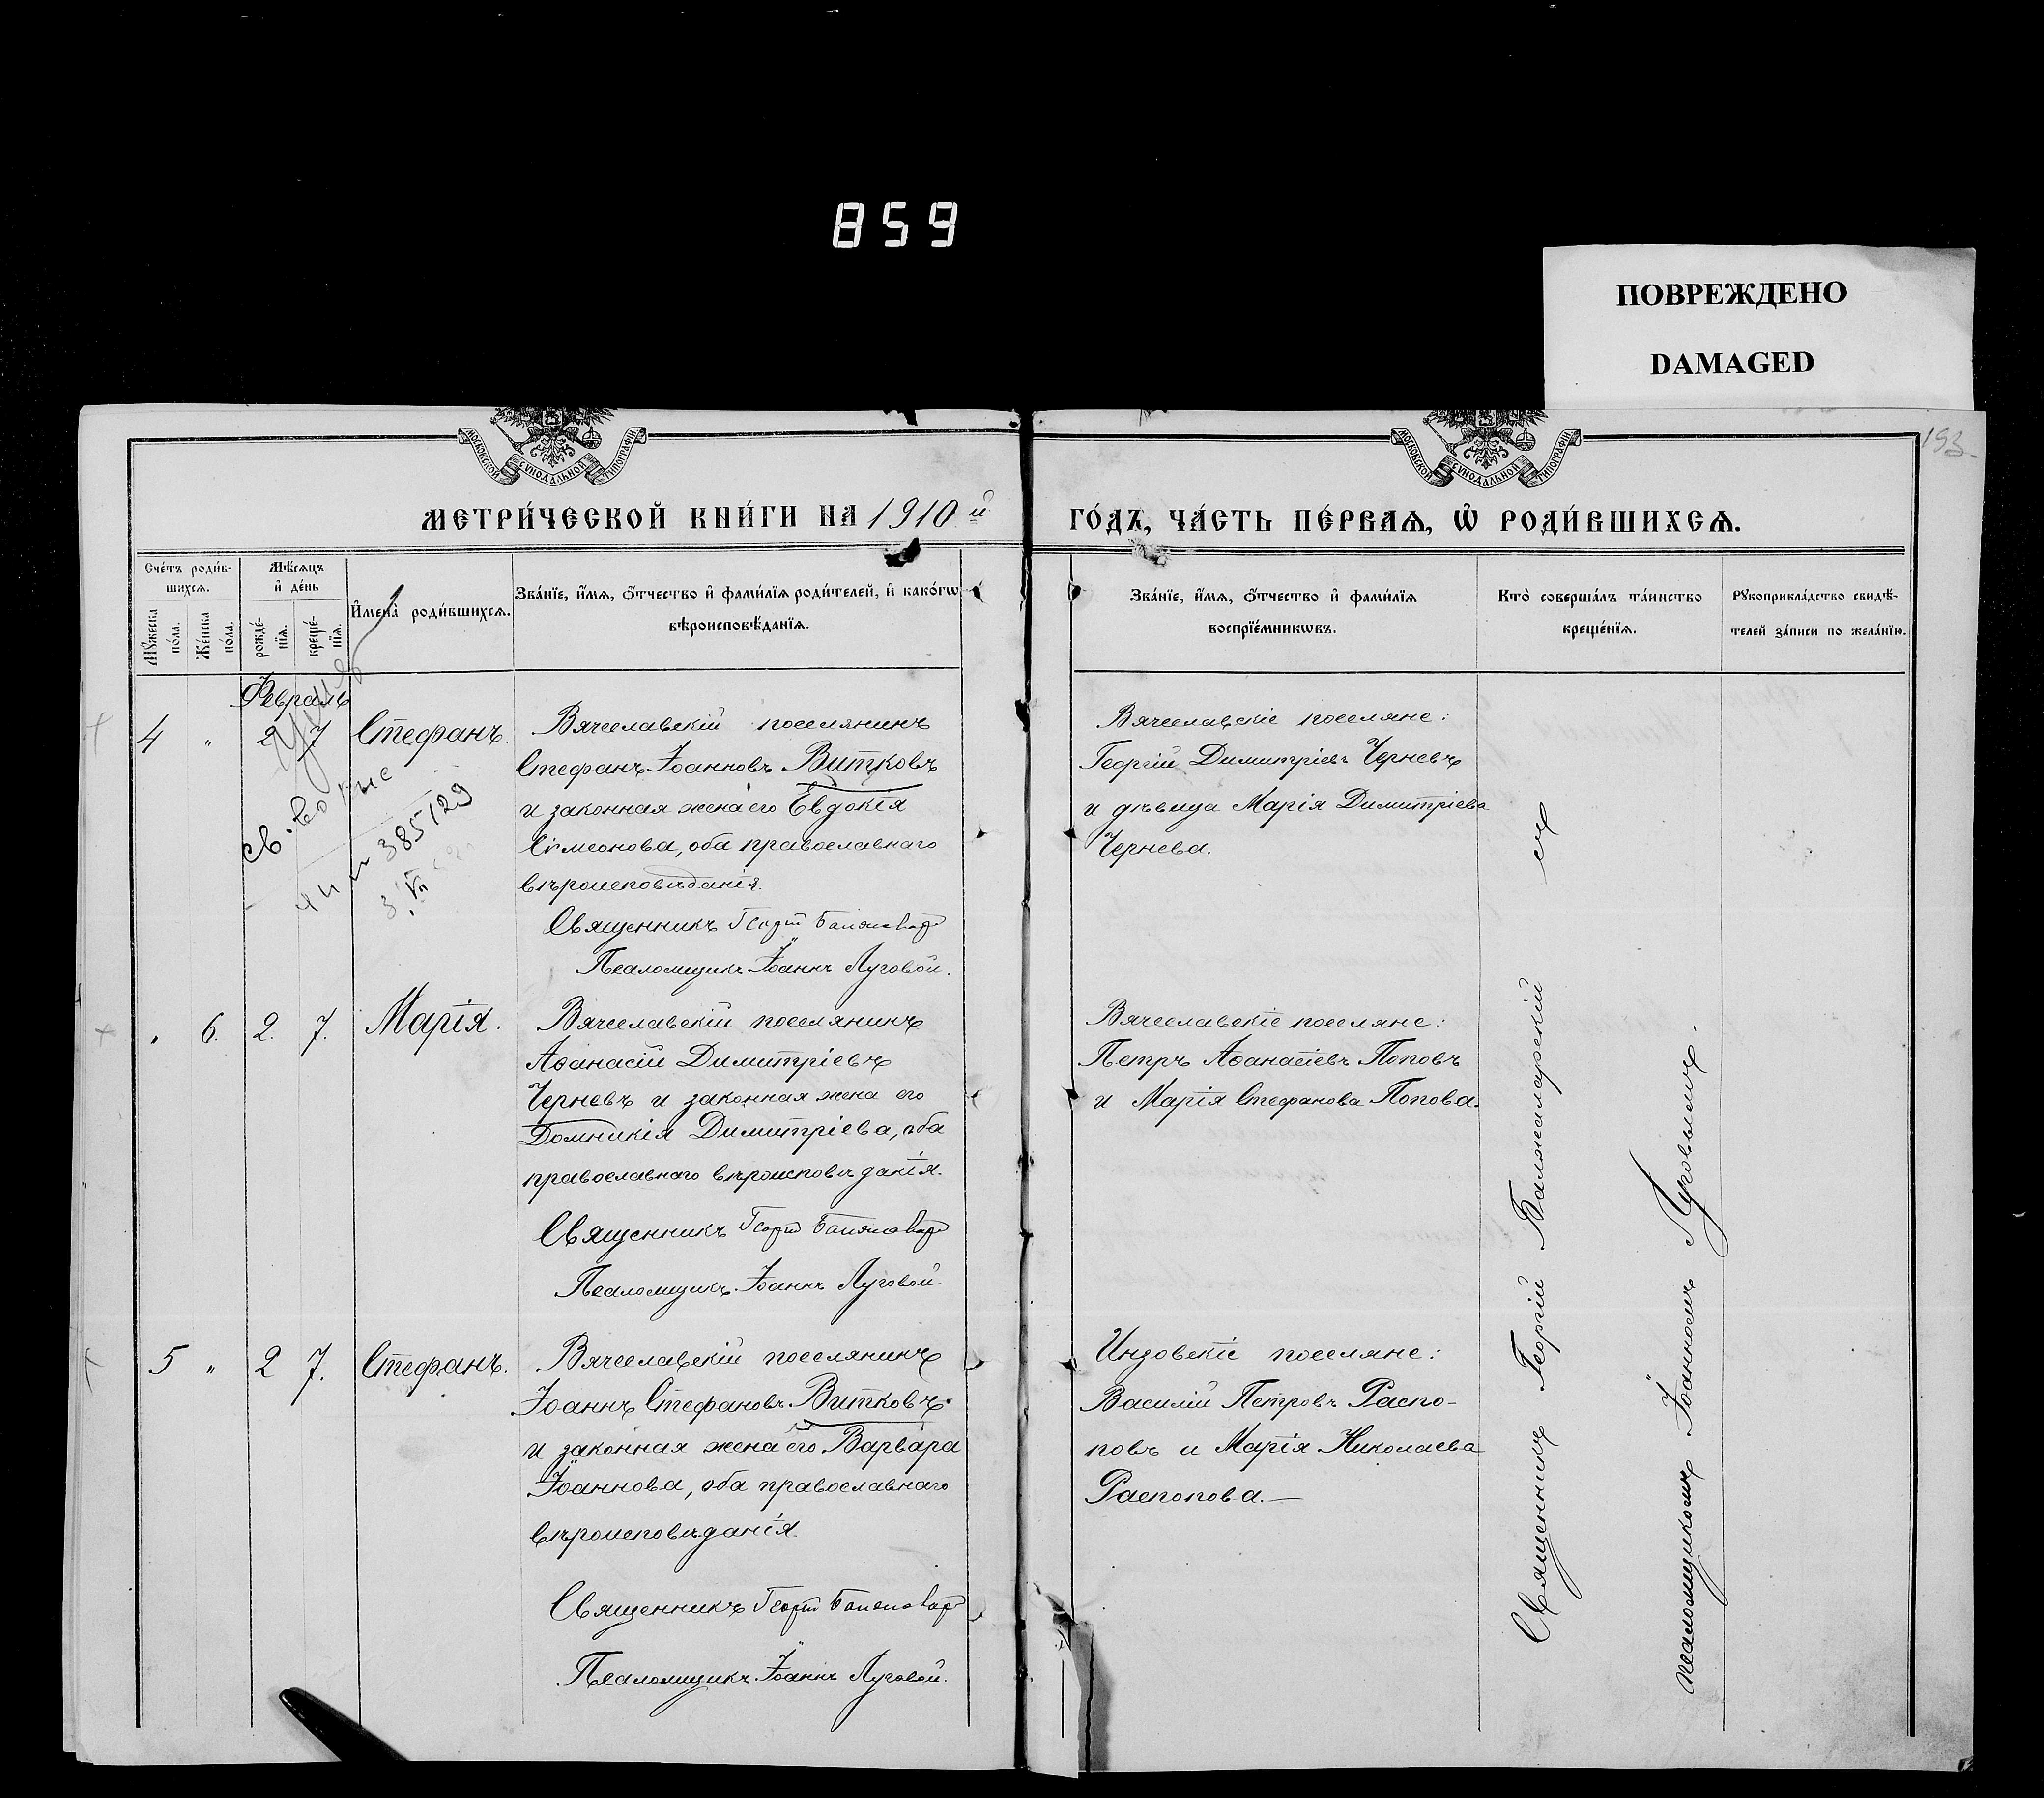 859
ПОВРЕЖДЕНО
DAMAGED
193
МОСКОВСКОЙ СѴНОДАЛЬНОЙ ТИПОГРАФІИ
МОСКОВСКОЙ СѴНОДАЛЬНОЙ ТИПОГРАФІИ
МЕТРИ́ЧЕСКОЙ КНИ́ГИ НА 1910й
ГО́ДЪ, ЧА́СТЬ ПЕ́РВАѦ, Ѡ҆ РОДИ́ВШИХСѦ.
Сче́тъ роди́в-
шихсѧ.
Мꙋ́жеска
по́ла.
Же́нска
по́ла.
Мѣ́сѧцъ
и҆ де́нь
рожде́-
нїѧ.
креще́-
нїѧ.
И҆мена̀ роди́вшихсѧ.
Зва́нїе, и҆́мѧ, ѻ҆́тчество и҆ фами́лїѧ роди́телей, и҆ како́гѡ
вѣроисповѣ́данїѧ.
Зва́нїе, и҆́мѧ, ѻ҆́тчество и҆ фами́лїѧ
воспрїе́мникѡвъ.
Кто̀ соверша́лъ та́инство
креще́нїѧ.
Рꙋкоприкла́дство свидѣ́-
телей за́писи по жела́нїю.
Февраль
4 " 2 7 Стефанъ.
Вячеславскій поселянинъ
Стефанъ Іоанновъ Витковъ
и законная жена его Евдокія
Сімеонова, оба православнаго
вѣроисповѣданія.
Священникъ Георгій
Псаломщикъ Іоаннъ Луговой.
Вячеславскіе поселяне:
Георгій Димитріевъ Черневъ
и дѣвица Марія Димитріева
Чернева.
385/29
" 6. 2. 7. Марія.
Вячеславскій поселянинъ
Аѳанасій Димитріевъ
Черневъ и законная жена его
Домникія Димитріева, оба
православнаго вѣроисповѣданія.
Священникъ Георгій
Псаломщикъ Іоаннъ Луговой.
Вячеславскіе поселяне:
Петръ Аѳанасіевъ Поповъ
и Марія Стефанова Попова.
5 " 2 7. Стефанъ.
Вячеславскій поселянинъ
Іоаннъ Стефановъ Витковъ
и законная жена его Варвара
Іоаннова, оба православнаго
вѣроисповѣданія.
Священникъ Георгій
Псаломщикъ Іоаннъ Луговой.
Инзовскіе поселяне:
Василій Петровъ Распо-
повъ и Марія Николаева
Распопова.—
Священникъ Георгій Балжаларскій съ
псаломщикомъ Іоанномъ Луговымъ.